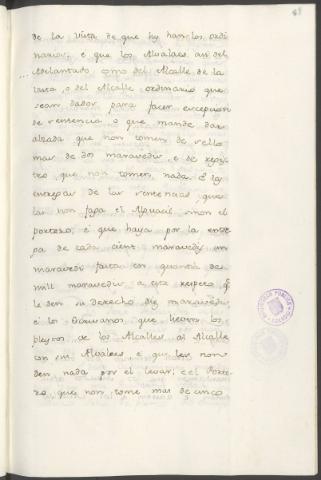 de la Vista de que hy han los ordi
narios, e que los Alcaldes asi del
Adelantado como del Alcalle de la
o del Alcalle ordinario que
sean dados para facer execucion
de sentencia, o que mande dar
alzada que non tomen de sello
mas de dos maravedis, e de regis
tro que non tomen nada. E las
entregas de las sentencias, que
las non faga el Alguacil, sinon el
portero; e que haya por la entre
ga de cada cient maravedis un
maravedi fasta en quantia de
mill maravedis a este respeto q
le den su derecho diez maravedis
e los Escrivanos que lieven los
pleytos de los Alcalles al Alcalle
con sus Alcalles, e que les non
den nada por el levar; e el Porte
ro, que non tome mas de cinco